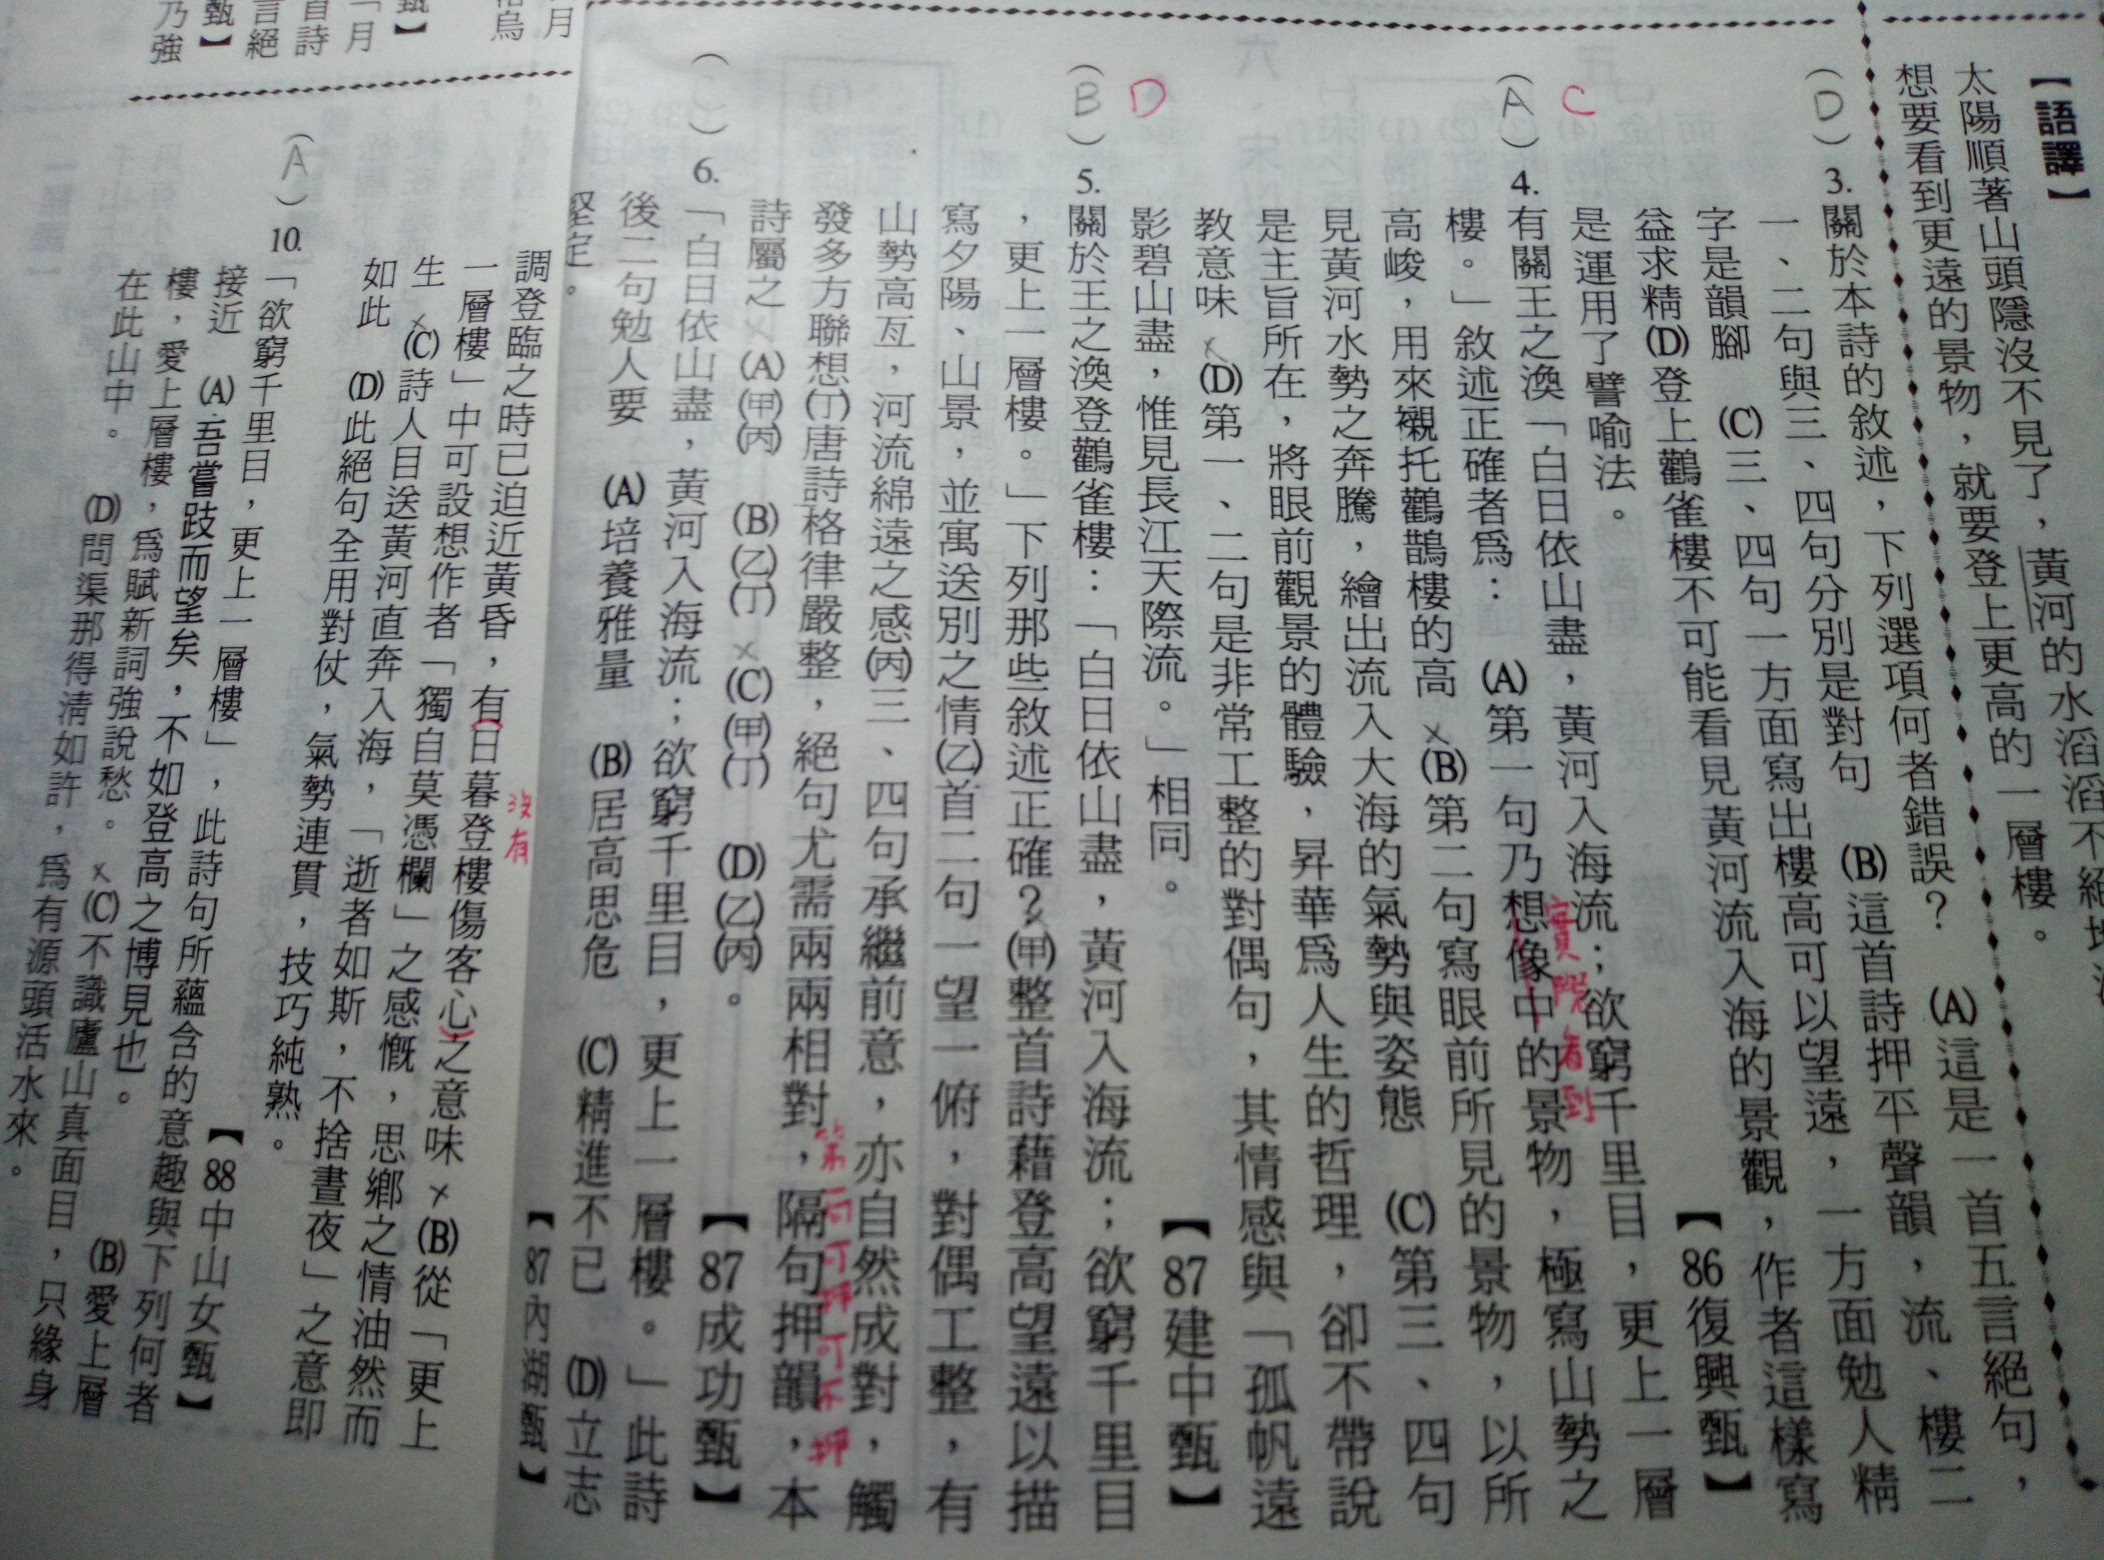 【語譯】
太陽順著山頭隱沒不見了，黃河的水滔滔不絕地
想要看到更遠的景物，就要登上更高的一層樓。
(D) 3. 關於本詩的敘述，下列選項何者錯誤？ (A)這是一首五言絕句，
一、二句與三、四句分別是對句 (B)這首詩押平聲韻，流、樓二
字是韻腳 (C)三、四句一方面寫出樓高可以望遠，一方面勉人精
益求精(D)登上鸛雀樓不可能看見黃河流入海的景觀，作者這樣寫
是運用了譬喻法。 【86復興甄】
(A) C 4. 有關王之渙「白日依山盡，黃河入海流；欲窮千里目，更上一層
樓。」敘述正確者為： (A)第一句乃想像中的景物，極寫山勢之
實際看到
高峻，用來襯托鸛鵲樓的高 ×(B)第二句寫眼前所見的景物，以所
見黃河水勢之奔騰，繪出流入大海的氣勢與姿態 (C)第三、四句
是主旨所在，將眼前觀景的體驗，昇華為人生的哲理，卻不帶說
教意味 ×(D)第一、二句是非常工整的對偶句，其情感與「孤帆遠
影碧山盡，惟見長江天際流。」相同。 【87建中甄】
(B) D 5. 關於王之渙登鸛雀樓：「白日依山盡，黃河入海流；欲窮千里目
，更上一層樓。」下列那些敘述正確？×(甲)整首詩藉登高望遠以描
寫夕陽、山景，並寓送別之情(乙)首二句一望一俯，對偶工整，有
山勢高亙，河流綿遠之感(丙)三、四句承繼前意，亦自然成對，觸
發多方聯想(丁)唐詩格律嚴整，絕句尤需兩兩相對，隔句押韻，本
第一句可押可不押
詩屬之 × (A)(甲)(丙) (B)(乙)(丁) ×(C)(甲)(丁) (D)(乙)(丙)。 【87成功甄】
(C) 6. 「白日依山盡，黃河入海流；欲窮千里目，更上一層樓。」此詩
後二句勉人要 (A)培養雅量 (B)居高思危 (C)精進不已 (D)立志
堅定。 【87內湖甄】
調登臨之時已迫近黃昏，有(日暮登樓傷客心)之意味 ×(B)從「更上
沒有
一層樓」中可設想作者「獨自莫憑欄」之感慨，思鄉之情油然而
生 ×(C)詩人目送黃河直奔入海，「逝者如斯，不捨晝夜」之意即
如此 (D)此絕句全用對仗，氣勢連貫，技巧純熟。
【88中山女甄】
(A) 10. 「欲窮千里目，更上一層樓」，此詩句所蘊含的意趣與下列何者
接近 (A)吾嘗跂而望矣，不如登高之博見也。 (B)愛上層
樓，愛上層樓，為賦新詞強說愁。 ×(C)不識廬山真面目，只緣身
在此山中。 (D)問渠那得清如許，為有源頭活水來。